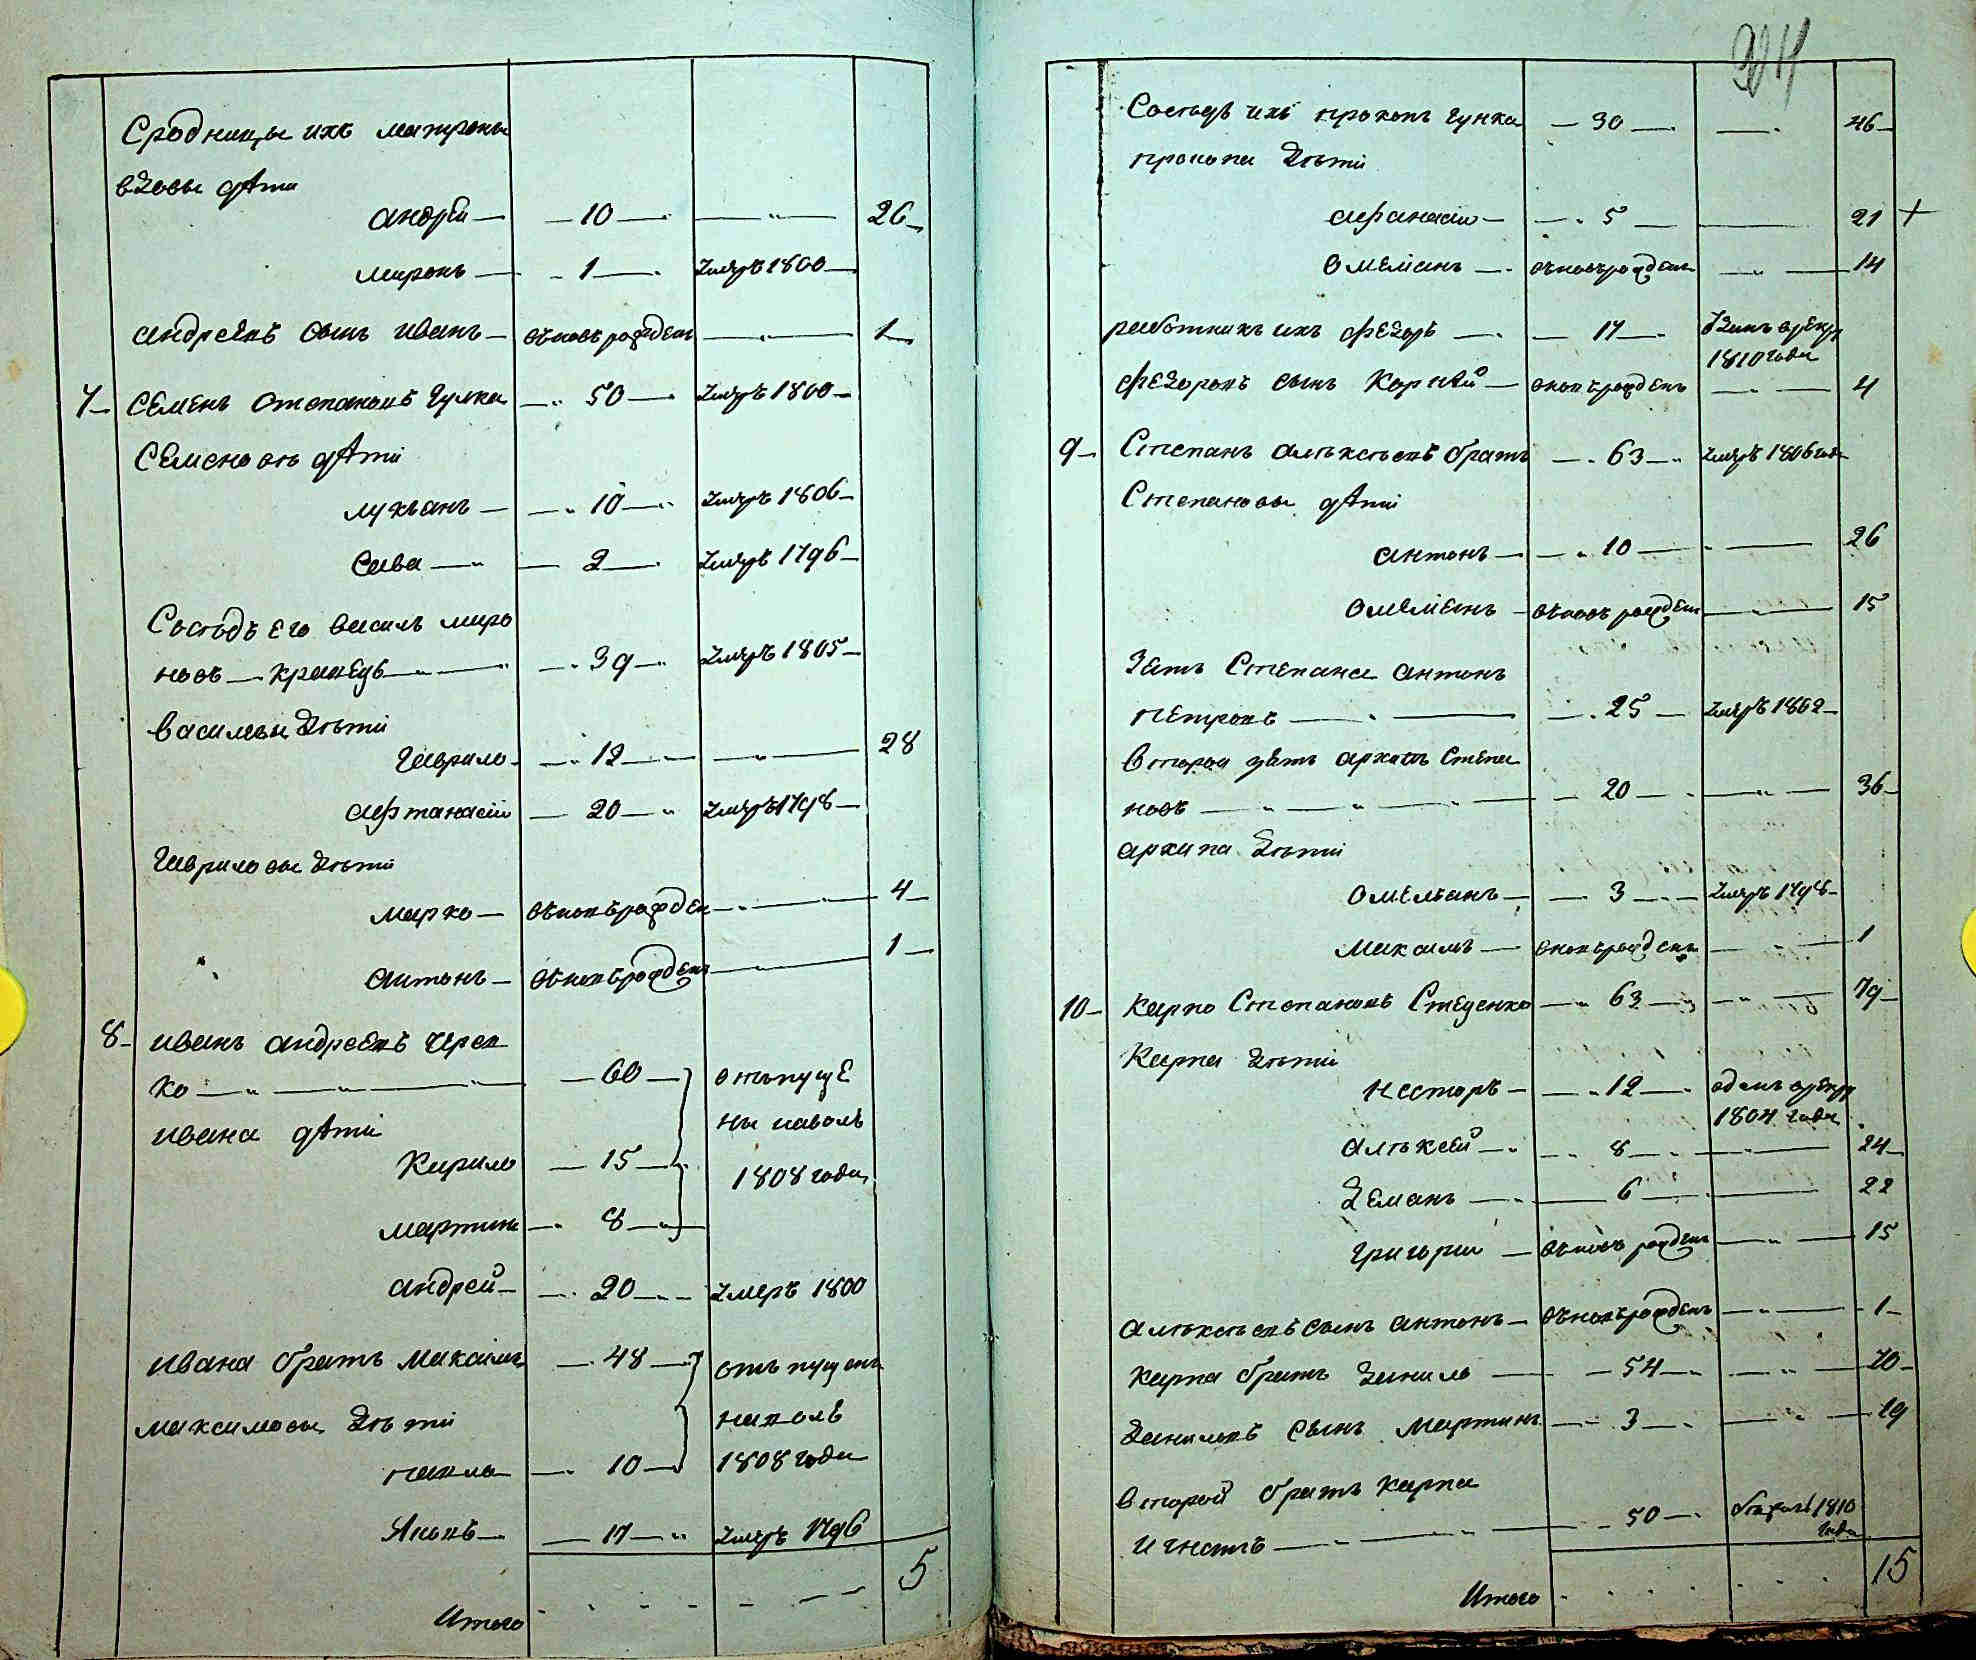 Сродницы ихъ матроны
вдовы дѣти
андрѣй — 10 — " — 26
миронъ — 1 — умеръ 1800
андреевъ сынъ иванъ — вновьрожденъ — " — 1
7 — Семенъ Степановъ — 50 — умеръ 1800
Семеновы дѣти
лукъянъ — 10 — умеръ 1806
Сава — 2 — умеръ 1796
Сосѣдъ его василь миро
новъ — — 39 — умеръ 1805
васильеи дѣти
Гаврило — 12 — " — 28
афтанасiй — 20 — умеръ 1798
Гавриловы дѣти
марко — вновьрожден — " — 4
антонъ — вновьрожденъ — " — 1
8 — иванъ андреевъ
ко — " — 60 — отпуще
ны наволь
ивана дѣти
Кирило — 15 — 1808 года
мартинъ — 8
андрей — 20 — умеръ 1800
ивана братъ Максимъ — 48 — отъпущенъ
максимовы дѣти наволь
павло — 10 — 1808 года
Яковъ — 17 — умеръ 1796
Итого 5
Сосѣдъ ихъ прокопъ — 30 — 46
прокопа дѣти
афанасiй — 5 — 21 +
омелiянъ — вновьрожденъ — " — 14
работникъ ихъ федоръ — 17 — рекр
1810 года
федоровъ сынъ Корнѣй — вновьрожденъ — 4
9 — Степанъ алѣксѣевъ братъ — 63 — умеръ 1806 года
Степановы дѣти
антонъ — 10 — 26
омелiянъ — вновьрожден — 15
Зять Степана антонъ
петровъ — 25 — умеръ 1802
второй зять архипъ Степа
новъ — " — 20 — " — 36
архипа дѣти
омелянъ — 3 — умеръ 1798
максимъ — вновьрожденъ — " — 1
10 — Карпо Степановъ — 63 — " — 79
Карпа дѣти
несторъ — 12 — отданъ врекр
1804 года
алѣксей — 8 — " — 24
Деманъ — 6 — " — 22
григорий — вновьрожденъ — " — 15
алѣксѣевъ сынъ антонъ — вновьрожденъ — " — 1
карпа братъ данило — 54 — " — 70
даниловъ сынъ мартинъ — 3 — " — 19
второй братъ карпа
игнатъ — " — 50 — 1810
года
Итого 15